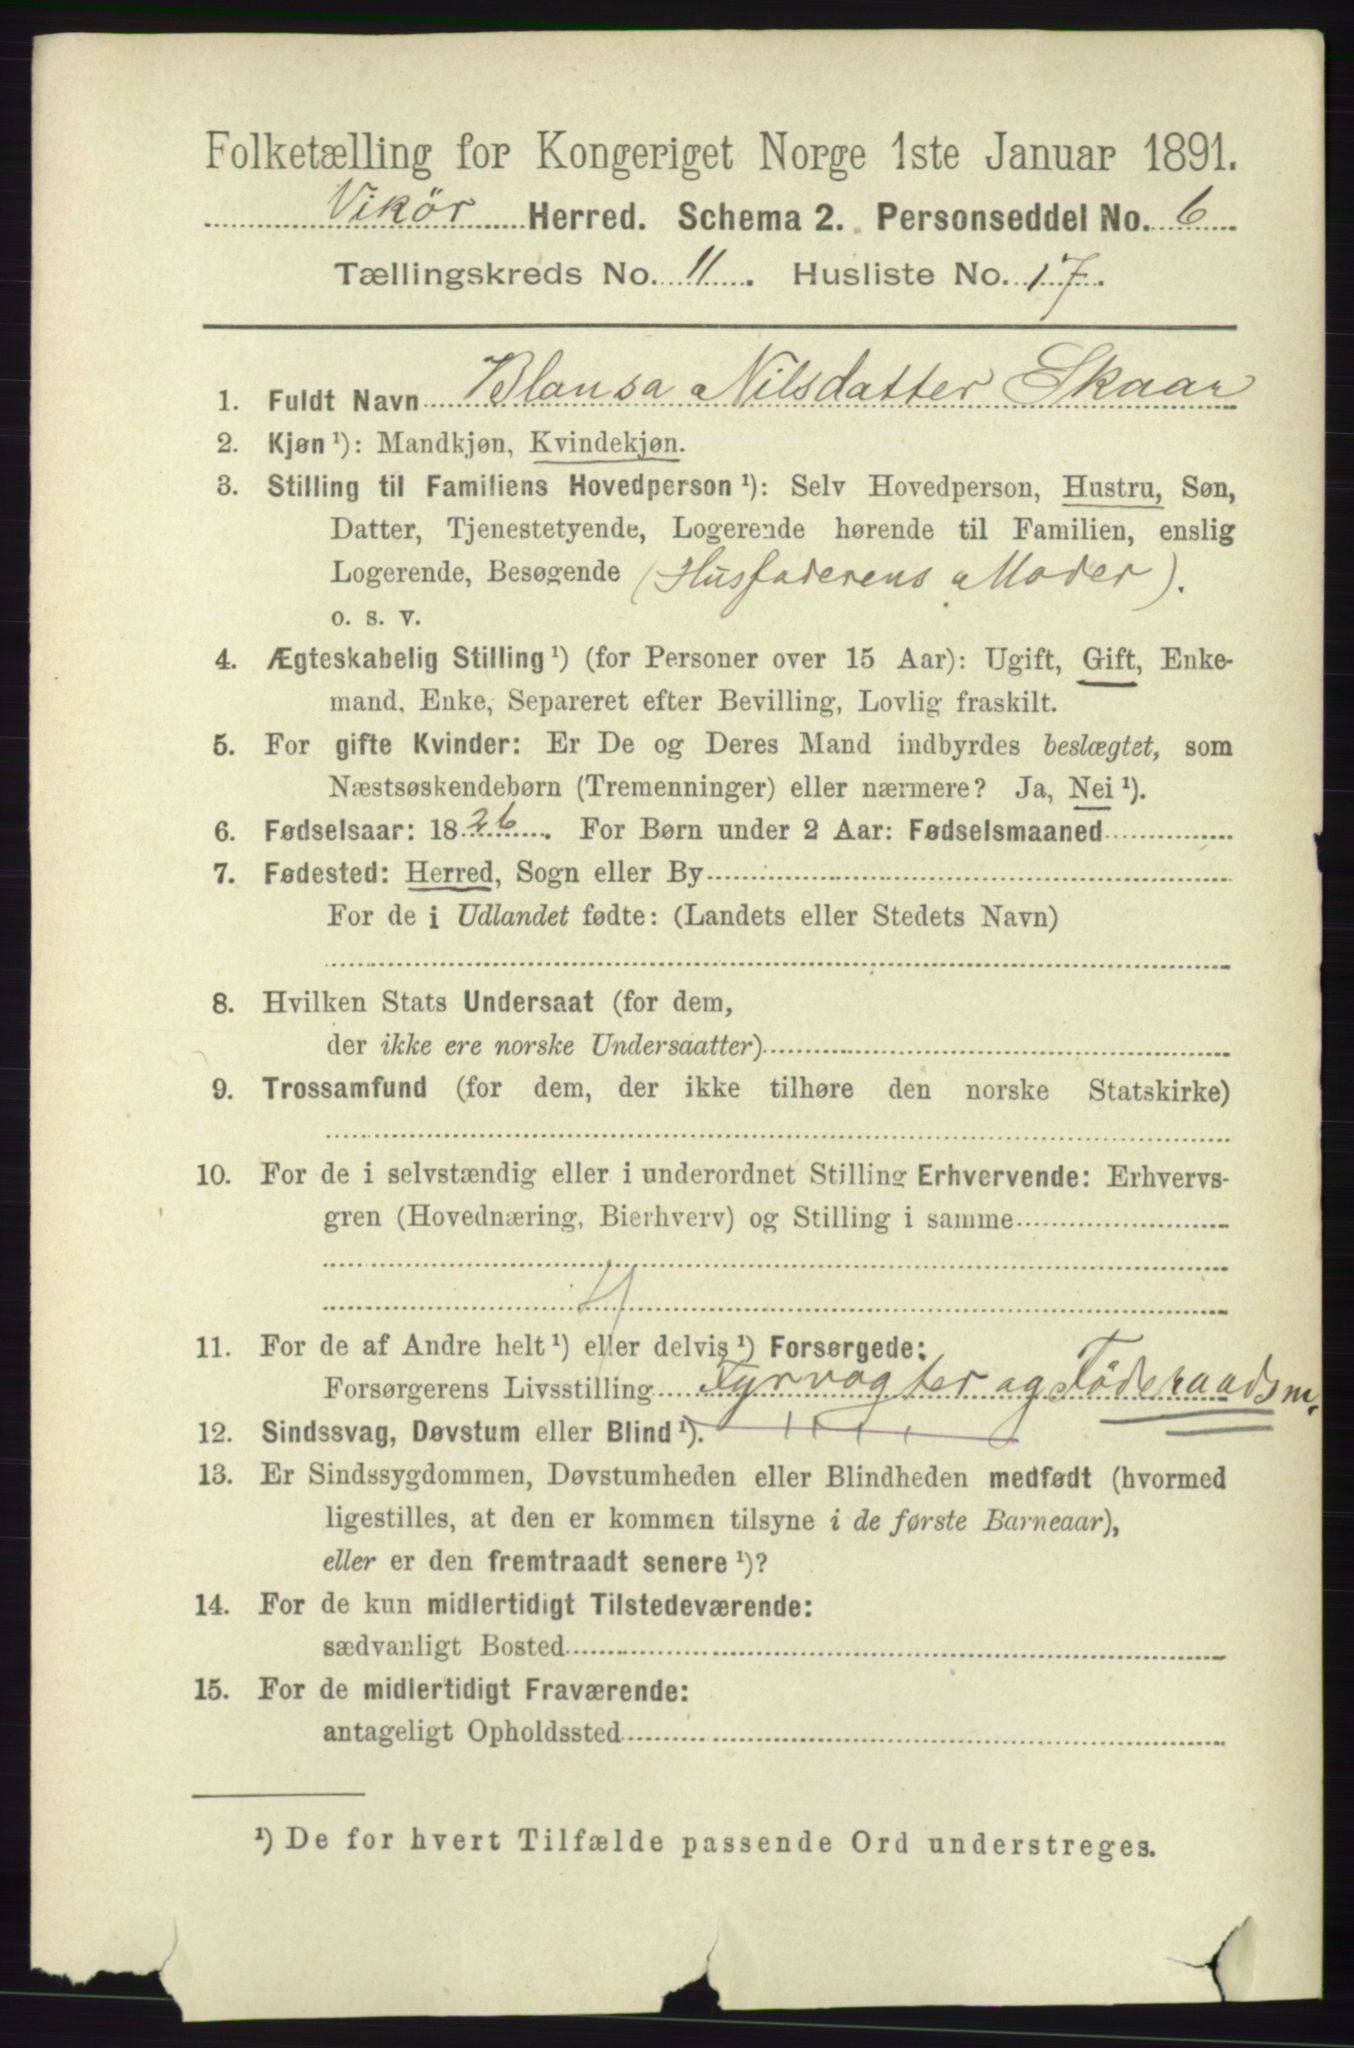 Folketælling for Kongeriget Norge 1ste Januar 1891.
Vikör Herred. Schema 2. Personseddel No. 6
Tællingskreds No. 11. Husliste No. 17.
1. Fuldt Navn Blansa Nilsdatter Skaar
2. Kjøn ¹): Mandkjøn, Kvindekjøn.
3. Stilling til Familiens Hovedperson ¹): Selv Hovedperson, Hustru, Søn,
Datter, Tjenestetyende, Logerende hørende til Familien, enslig
Logerende, Besøgende (Husfaderens Moder).
o. s. v.
4. Ægteskabelig Stilling ¹) (for Personer over 15 Aar): Ugift, Gift, Enke-
mand, Enke, Separeret efter Bevilling, Lovlig fraskilt.
5. For gifte Kvinder: Er De og Deres Mand indbyrdes beslægtet, som
Næstsøskendebørn (Tremenninger) eller nærmere? Ja, Nei ¹).
6. Fødselsaar: 1826. For Børn under 2 Aar: Fødselsmaaned
7. Fødested: Herred, Sogn eller By
For de i Udlandet fødte: (Landets eller Stedets Navn)
8. Hvilken Stats Undersaat (for dem,
der ikke ere norske Undersaatter)
9. Trossamfund (for dem, der ikke tilhøre den norske Statskirke)
10. For de i selvstændig eller i underordnet Stilling Erhvervende: Erhvervs-
gren (Hovednæring, Bierhverv) og Stilling i samme
11. For de af Andre helt ¹) eller delvis ¹) Forsørgede:
Forsørgerens Livsstilling Fyrvogter og Föderaadsm.
12. Sindssvag, Døvstum eller Blind ¹).
13. Er Sindssygdommen, Døvstumheden eller Blindheden medfødt (hvormed
ligestilles, at den er kommen tilsyne i de første Barneaar),
eller er den fremtraadt senere ¹)?
14. For de kun midlertidigt Tilstedeværende:
sædvanligt Bosted
15. For de midlertidigt Fraværende:
antageligt Opholdssted
¹) De for hvert Tilfælde passende Ord understreges.